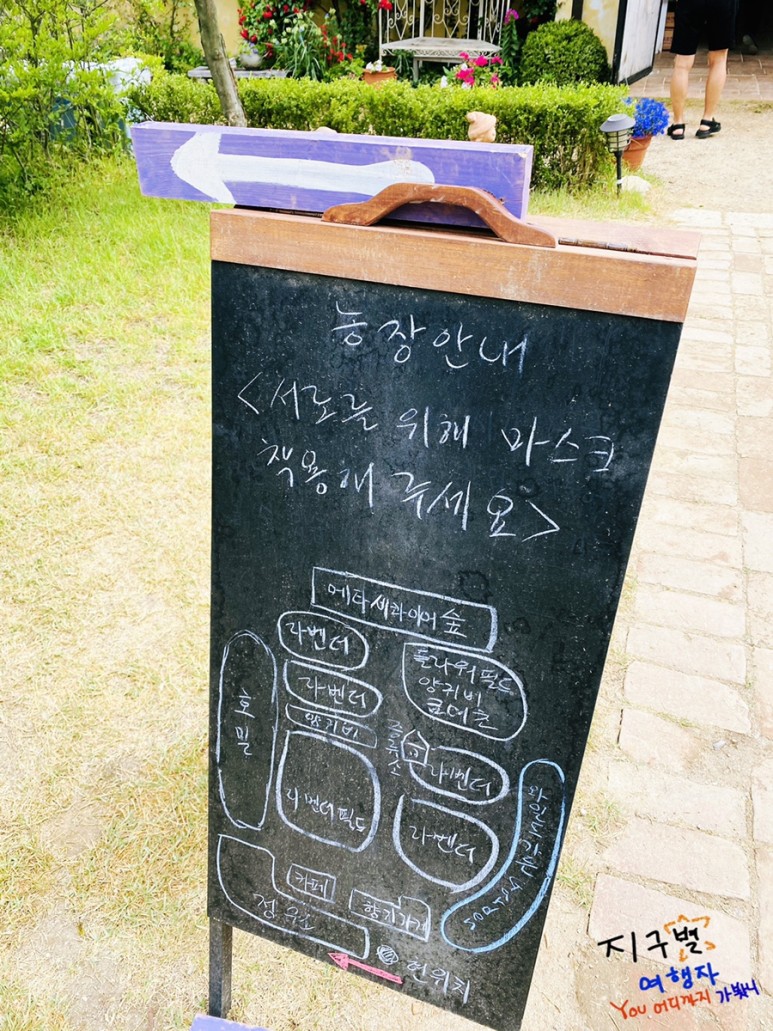 농장안내
<서로를 위해 마스크
착용해 주세요>
메타세콰이어 숲
라벤더
라벤더
양귀비
플라워필드
양귀비
호밀
증류소
라벤더
라벤더필드
라벤더
카페
향기가게
정원
현위치
지구별
여행자
You 어디까지 가봤니